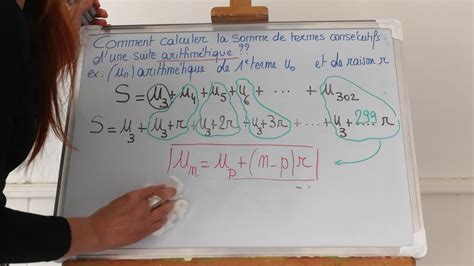 Comment calculer la somme de termes consécutifs
d'une suite arithmétique ??
ex. (un) arithmétique de 1e terme u0 et de raison r
S = u3 + u4 + u5 + u6 + ... + u302
S = u3 + u3 + r + u3 + 2r + u3 + 3r + ... + u3 + 299 r
un = up + (n-p)r